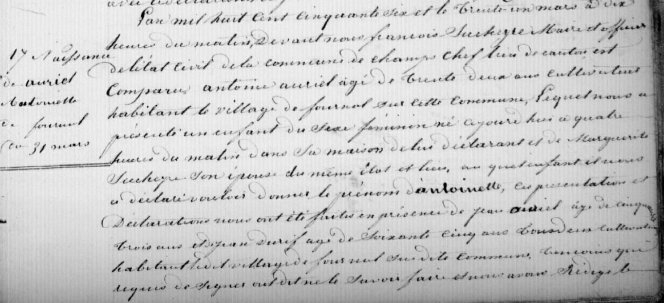 17 Naissance
de auriel
Antoinette
de fournol
du 31 mars
L'an mil huit cent cinquante six et le trente un mars à dix
heures du matin, devant nous françois Jucheyre Maire et officier
de l'état Civil de la commune de champs chef lieu de canton est
Comparu antoine auriel âgé de trente deux ans cultivateur
habitant le village de fournol sur cette Commune, Lequel nous a
présenté un enfant du Sexe féminin né ajourd'huis à quatre
heures du matin dans Sa maison de lui déclarant et de Marguerite
Jucheyre Son épouse du même état et lieu, au quel enfant il nous
a déclaré vouloir donner le prénom d'antoinette, Ces présentation et
Déclarations nous ont été faites en présence de jean auriel âgé de cinquante
trois ans et jean Durif age de Soixante Cinq ans tous deux cultivateurs
habitant le dit village de fournol Sus dite Commune, témoins qui
requis de Signer ont dit ne le Savoir faire et nous avons Rédigé le